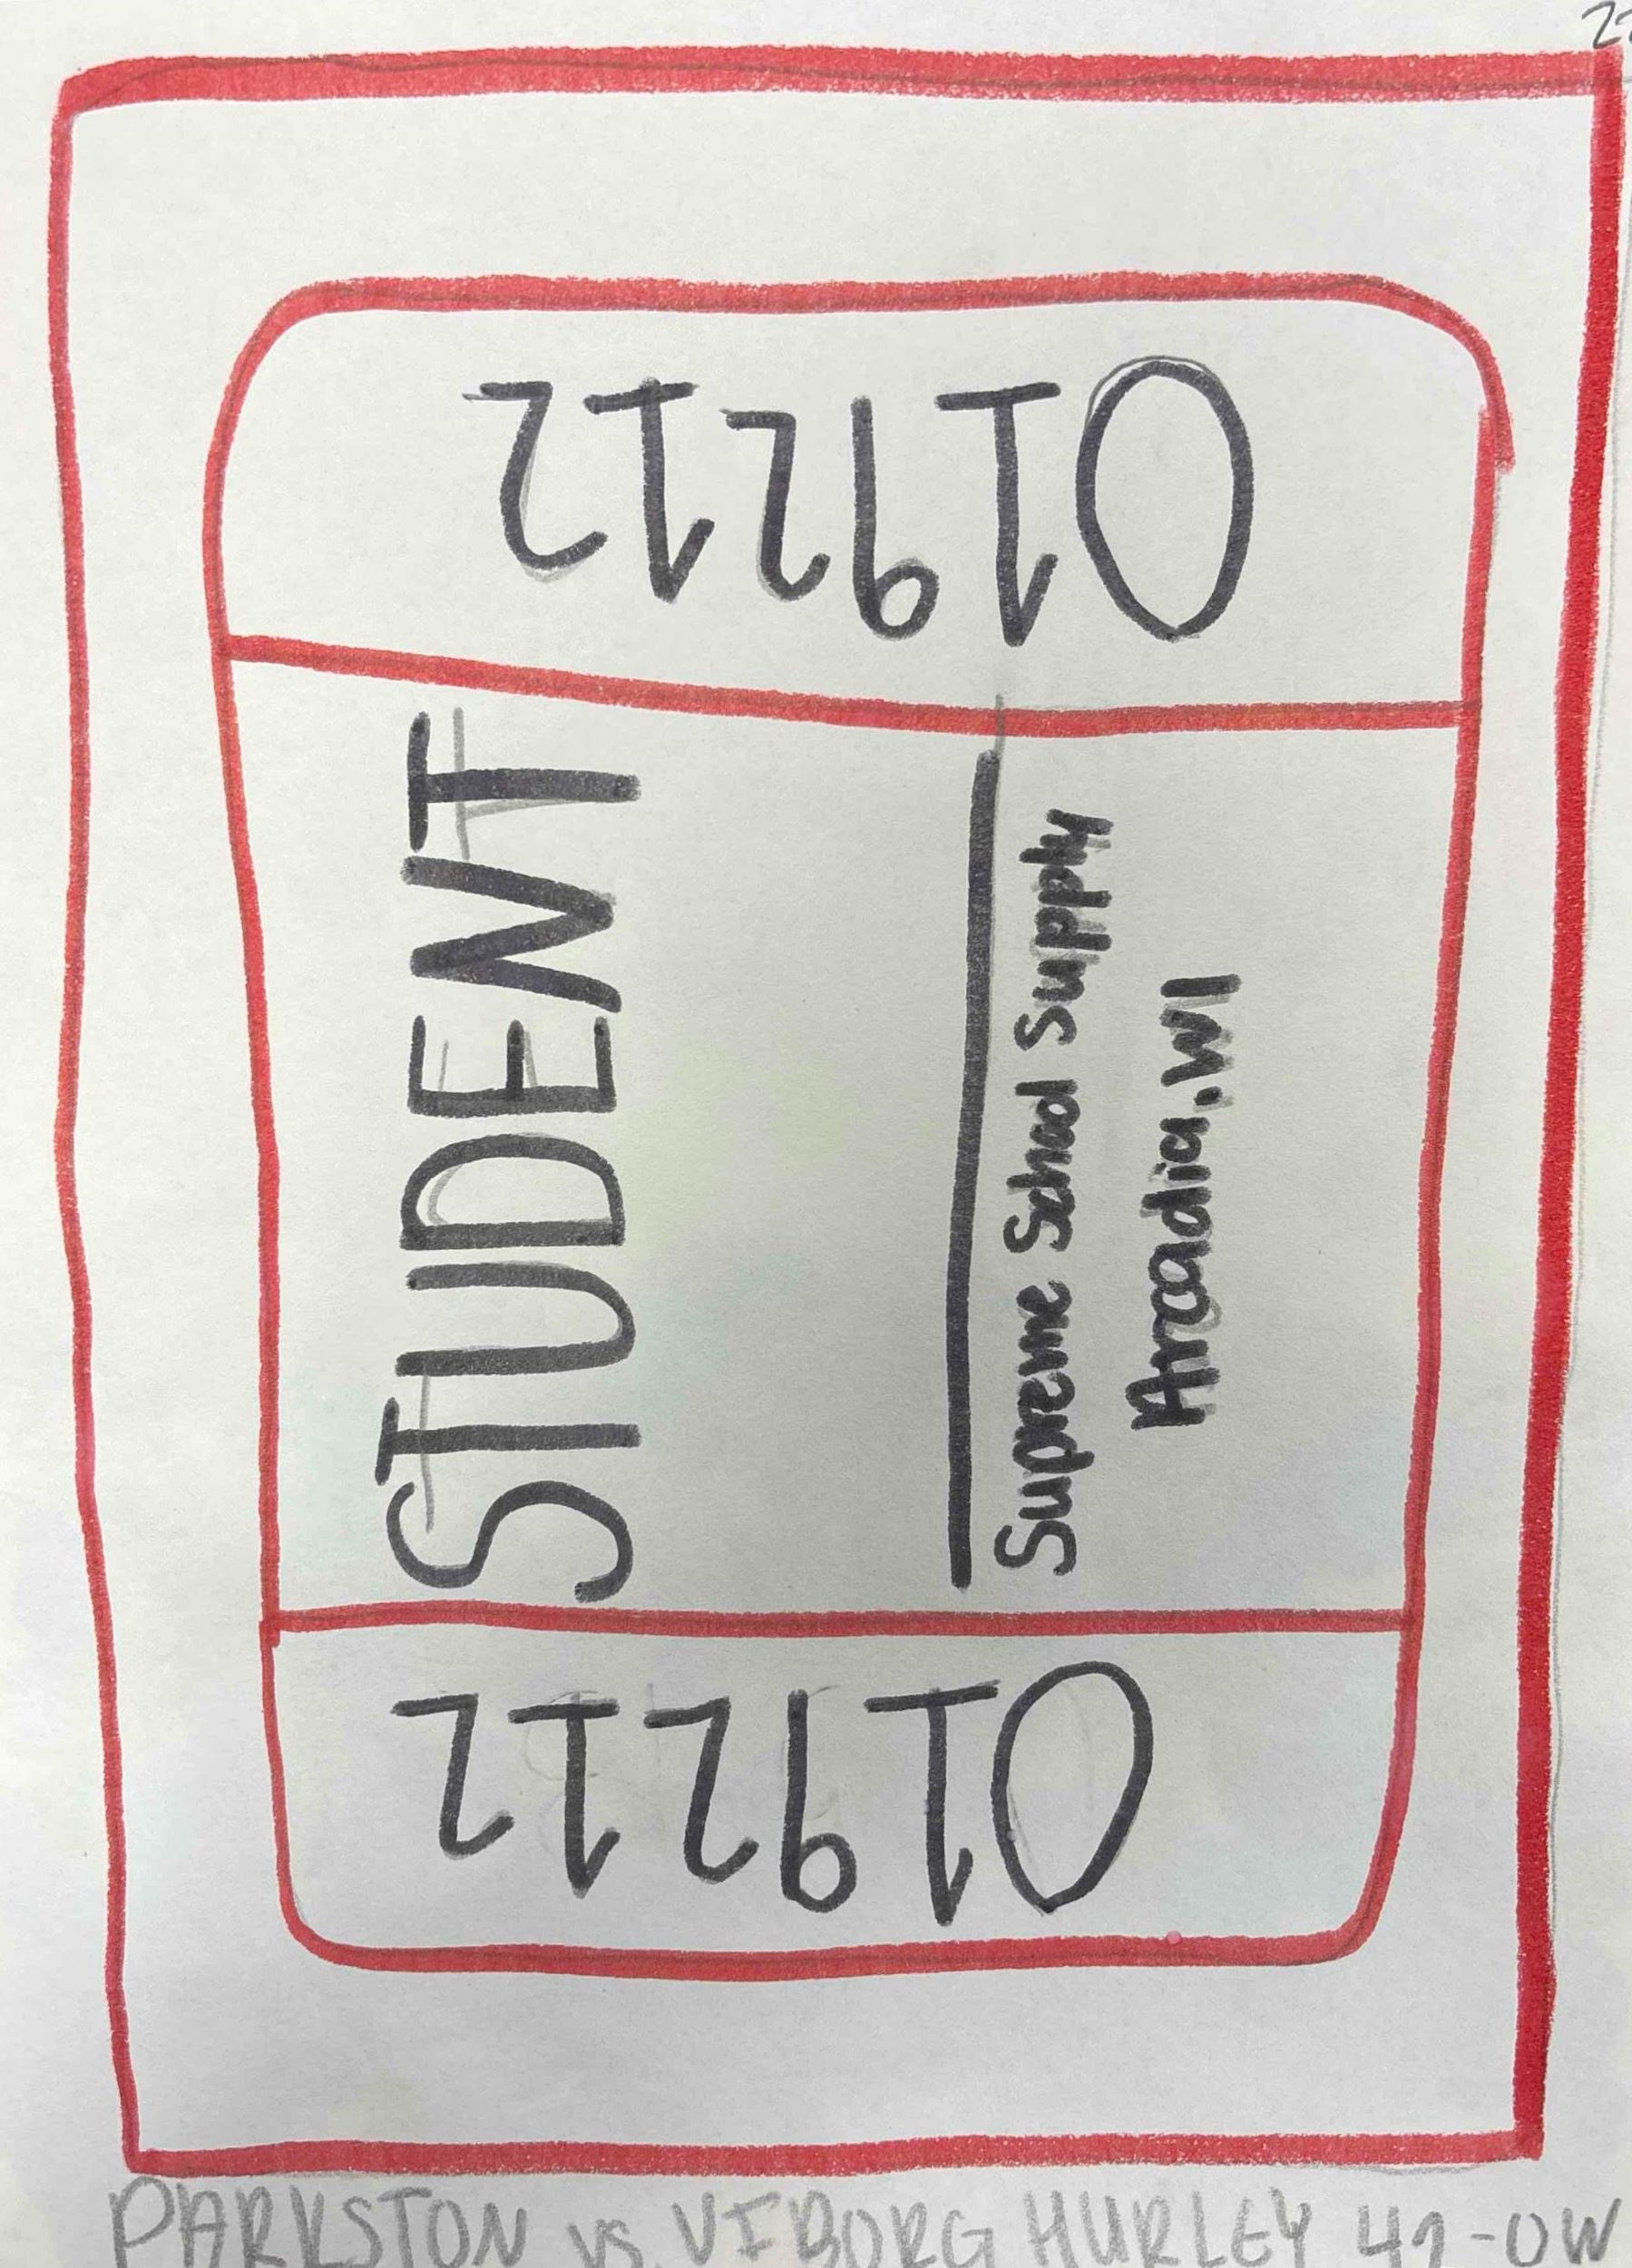 019212
STUDENT
Supreme School Supply
Arcadia,WI
019212
PARKSTON vs. VIBORG HURLEY